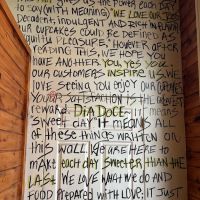 gives us the power each day
to say (with meaning) "WE LOVE OUR JOB"
Decadent, indulgent AND RICH IN FLAVOR
our cupcakes could BE DEFINED AS
guilty PLEASURE." However AFTER
READING THIS, WE HOPE YOU
HAVE ANOTHER! YOU, YES YOU
OUR CUSTOMERS INSPIRE US. WE
LOVE Seeing YOU ENJOY OUR
YOUR SATISFACTION IS THE GREATEST
reward. DIA DOCE: IT MEANS
"SWEET DAY" IT MEANS ALL
OF THESE THINGS WRITTEN ON
THIS WALL. WE ARE HERE TO
MAKE EACH DAY SWEETER THAN THE
LAST. WE LOVE WHAT WE DO AND
FOOD PREPARED WITH LOVE, IT JUST